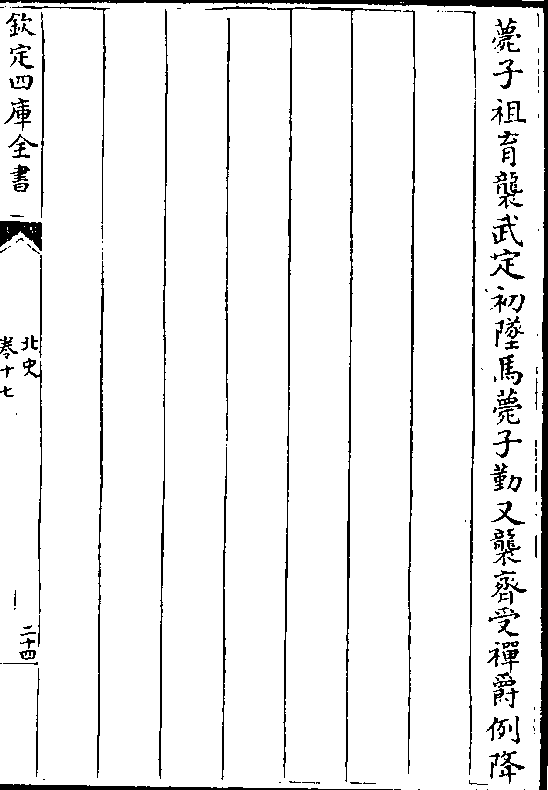 薨子祖育襲武定初墜馬薨子勤又襲齊受禪爵例降
欽定四庫全書
北史
卷十七
二十四